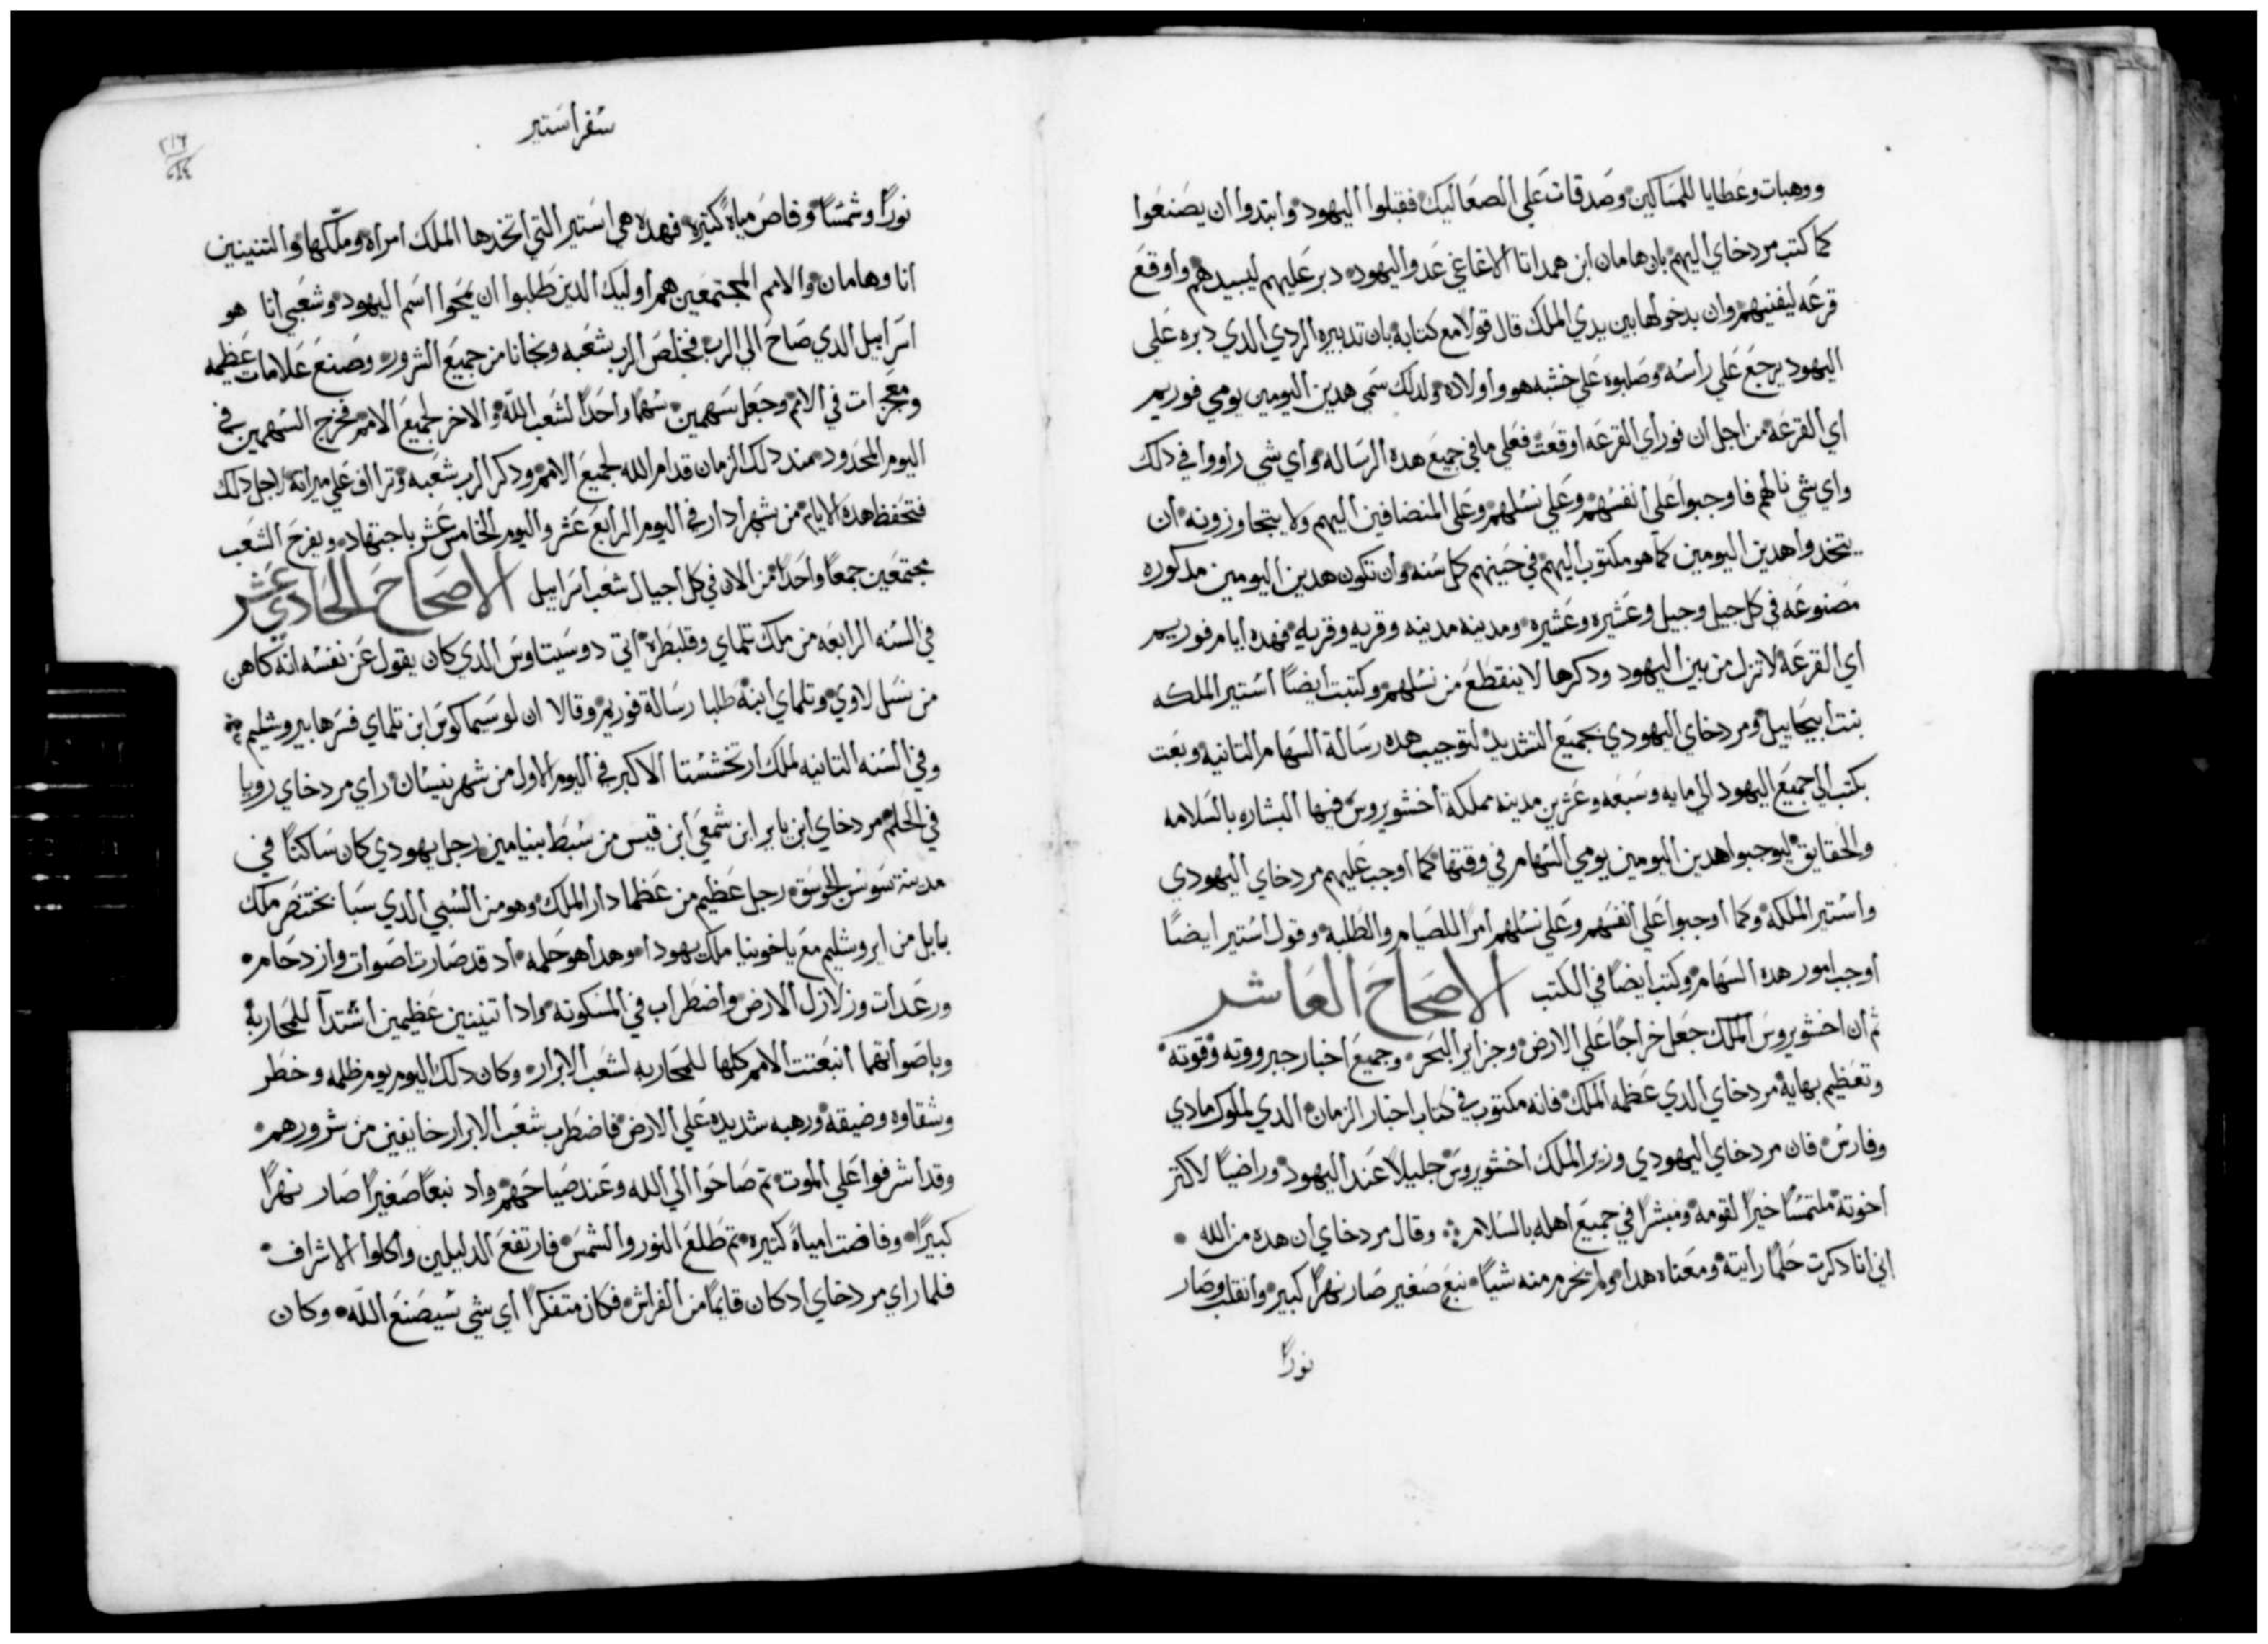 ووهبات وعطايا للمساكين وصدقات علي الصعاليك فقبلوا اليهود وابتدوا ان يصنعوا
كما كتب مردخاي اليهم بان هامان ابن همداتا الاغاغي عدو اليهود دبر عليهم ليبيدهم واوقع
قرعه ليفنيهم وان بدخولها بين يدي الملك قال قولا مع كتابة بان تدبيره الردي الدي دبره علي
اليهود يرجع علي راسه وصلبوه علي خشبه هو واولاده ولدلك سمي هدين اليومين يومي فوريم
اي القرعه من اجل ان فور اي القرعه اوقعت فعلي ما في جميع هده الرساله واي شي راووا في دلك
واي شي نالهم فاوجبوا علي انفسهم وعلي نسلهم وعلي المنضافين اليهم ولا يتجاوزونه ان
يتخدوا هدين اليومين كما هو مكتوب اليهم في حينهم كل سنه وان تكون هدين اليومين مدكوره
مصنوعه في كل جيل وجيل وعشيره وعشيره ومدينه مدينه وقريه وقريه فهده ايام فوريم
اي القرعه لا تزل من بين اليهود ودكرها لا ينقطع من نسلهم وكتبت ايضاً استير الملكه
بنت ابيحاييل ومردخاي اليهودي بجميع التشديد لتوجيب هده رسالة السهام التانيه وبعت
بكتب الي جميع اليهود الي مايه وسبعه وعشرين مدينه مملكة اخشويروس فيها البشاره بالسلامه
والحقايق ليوجبوا هدين اليومين يومي السهام في وقتها كما اوجب عليهم مردخاي اليهودي
واستير الملكه وكما اوجبوا علي انفسهم وعلي نسلهم امر اللصيام والطلبه وقول استير ايضاً
اوجب امور هده السهام وكتب ايضاً في الكتب الاصحاح العاشر
ثم ان اخشويروس الملك جعل خراجاً علي الارض وجزاير البحر وجميع اخبار جبرووته وقوته
وتعظيم بهاية مردخاي الدي عظمه الملك فانه مكتوب في كتاب اخبار الزمان الدي لملوك مادي
وفارس فان مردخاي اليهودي وزير الملك اخشويروس جليلاً عند اليهود وراضياً لاكتر
اخوته ملتمساً خيراً لقومه ومبشراً في جميع اهله بالسلام وقال مردخاي ان هده من الله
اني انا دكرت حلماً رايته ومعناه هدا ولم تخرم منه شياً نبع صغير صار نهراً كبير وانقلب وصار
نوراً
سفر استير
نوراً وشمساً وفاض مياة كتيره فهده هي استير التي اتخدها الملك امراه وملّكها والتنينين
انا وهامان والامم المجتمعين هم اوليك الدين طلبوا ان يمحوا اسم اليهود وشعبي انا هو
اسراييل الدي صاح الي الرب فخلص الرب شعبه ونجانا من جميع الشرور وصنع علامات عظيمه
ومعجزات في الامم وجعل سهمين سهماً واحداً لشعب الله والاخر لجميع الامم فخرج السهمين في
اليوم المحدود مند دلك الزمان قدام الله لجميع الامم ودكر الرب شعبه وترااف علي ميراته لاجل دلك
فتحفظ هده الايام من شهر ادار في اليوم الرابع عشر واليوم الخامس عشر باجتهاد ويفرح الشعب
مجتمعين جمعاً واحداً من الان في كل اجيال شعب اسراييل الاصحاح الحادي عشر
في السنه الرابعه من ملك تلماي وقلبطرة اتي دوسيتاوس الدي كان يقول عن نفسه انه كاهن
من نسل لاوي وتلماي ابنه طلبا رسالة فوريم وقالا ان لوسيماكوس ابن تلماي فسرها بيروشليم
وفي السنه التانيه لملك ارتخششتا الاكبر في اليوم الاول من شهر نيسان راي مردخاي رويا
في الحلم مردخاي ابن ياير ابن شمعي ابن قيس من سبط بنيامين رجل يهودي كان ساكناً في
مدينة سوس الجوسق رجل عظيم من عظما دار الملك وهو من السبي الدي سبا بختنصر ملك
بابل من ايروشليم مع ياخونيا ملك يهودا وهدا هو حلمه اد قد صارت اصوات وازدحام
ورعدات وزلازل الارض واضطراب في المسكونه وادا تنينين عظيمين اشتدا للمحاربة
وباصواتهما انبعتت الامم كلها للمحاربه لشعب الابرار وكان دلك اليوم يوم ظلمه وخطر
وشقاوه وضيقه ورهبه شديده علي الارض فاضطرب شعب الابرار خايفين من شرورهم
وقد اشرفوا علي الموت تم صاحوا الي الله وعند صياحهم واد نبعاً صغيراً صار نهراً
كبيراً وفاضت امياة كتيره تم طلع النور والشمس فارتفع الدليلين واكلوا الاشراف
فلما راي مردخاي اد كان قايماً من الفراش فكان متفكراً اي شي سيصنع الله وكان